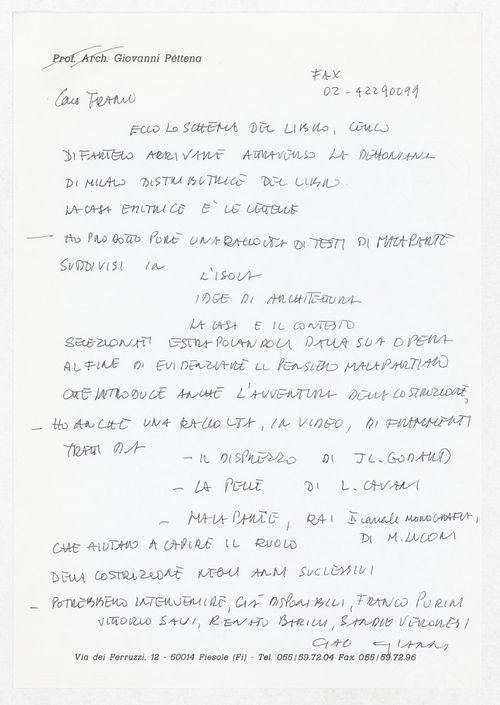 Prof. Arch. Giovanni Pèttena
FAX
02-42290099
Caro FRANCO
ECCO LO SCHEMA DEL LIBRO, CERCO
DI FARTELO ARRIVARE ATTRAVERSO LA DEHONIANA
DI MILANO DISTRIBUTRICE DEL LIBRO.
LA CASA EDITRICE E' LE LETTERE
— HO PRODOTTO PURE UNA RACCOLTA DI TESTI DI MALAPARTE
SUDDIVISI IN
L'ISOLA
IDEE DI ARCHITETTURA
LA CASA E IL CONTESTO
SELEZIONATI ESTRAPOLANDOLI DALLA SUA OPERA
AL FINE DI EVIDENZIARE IL PENSIERO MALAPARTIANO
CHE INTRODUCE ANCHE L'AVVENTURA DELLA COSTRUZIONE,
— HO ANCHE UNA RACCOLTA, IN VIDEO, DI FRAMMENTI
TRATTI DA
— IL DISPREZZO DI JL. GODARD
— LA PELLE DI L. CAVANI
— MALAPARTE, RAI II canale MONOGRAFIA,
DI M.
CHE AIUTANO A CAPIRE IL RUOLO
DELLA COSTRUZIONE NEGLI ANNI SUCCESSIVI
— POTREBBERO INTERVENIRE, GIÀ DISPONIBILI, FRANCO PURINI
VITTORIO SAVI, RENATO BARILLI, SANDRO VERONESI
CIAO GIANNI
Via dei Ferruzzi, 12 - 50014 Fiesole (Fi) - Tel. 055/59.72.04 Fax 055/59.72.96